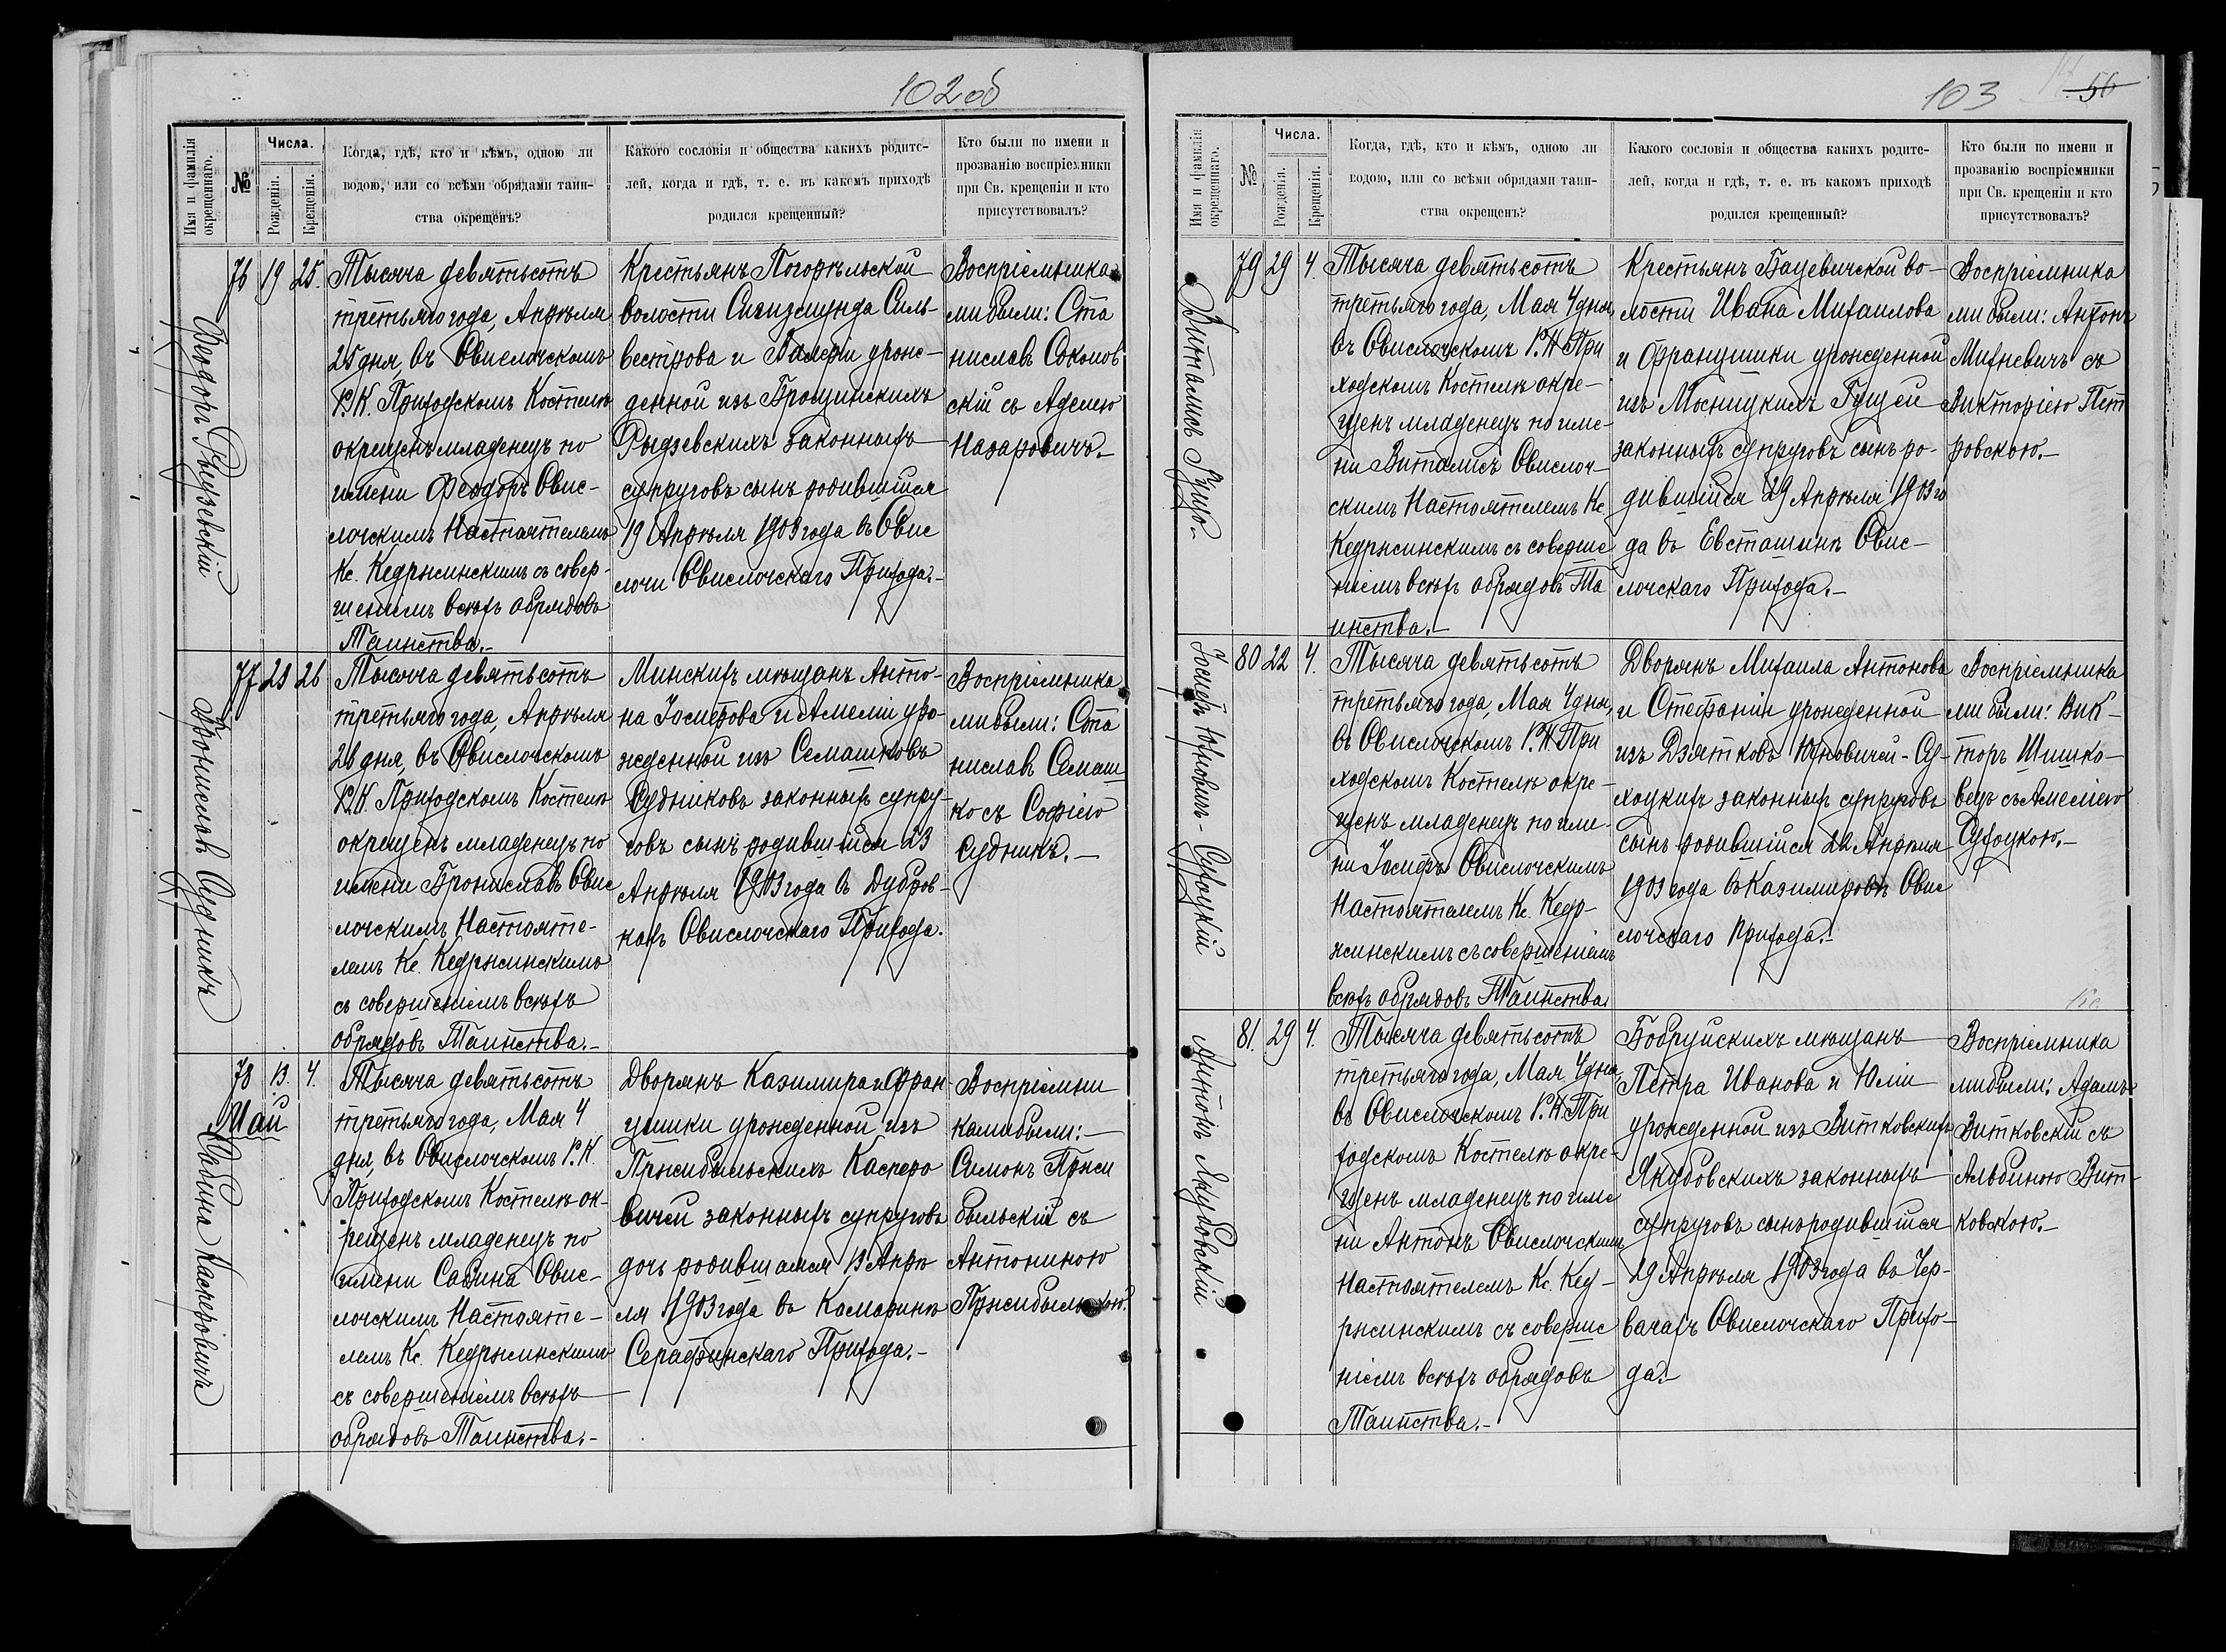 102 об
Имя и фамилія окрещеннаго.
№
Числа.
Рожденія.
Крещенія.
Когда, гдѣ, кто и кѣмъ, одною ли
водою, или со всѣми обрядами таин-
ства окрещенъ?
Какого сословія и общества какихъ родите-
лей, когда и гдѣ, т. е. въ какомъ приходѣ
родился крещенный?
Кто были по имени и
прозванію воспріемники
при Св. крещеніи и кто
присутствовалъ?
Феодоръ Рыдзевскій
76 19 25.
Тысяча девятьсотъ
третьяго года, Апрѣля
25 дня, въ Свислочскомъ
Р.К. Приходскомъ Костелѣ
окрещенъ младенецъ по
имени Феодоръ Свис-
лочскимъ Настоятелемъ
Кс. Кедржинскимъ съ совер-
шеніемъ всѣхъ обрядовъ
Таинства.-
Крестьянъ Погорѣльской
волости Сигизмунда Силь-
вестрова и Валеріи урож-
денной изъ Брощинскихъ
Рыдзевскихъ законныхъ
супруговъ сынъ родившійся
19 Апрѣля 1903 года въ Свис
лочи Свислочскаго Прихода.-
Воспріемника
ми были: Ста
ниславъ Соколов
скій съ Аделею
Назаровичъ.-
Брониславъ Судникъ
77 23 26
Тысяча девятьсотъ
третьяго года, Апрѣля
26 дня, въ Свислочскомъ
Р.К. Приходскомъ Костелѣ
окрещенъ младенецъ по
имени Брониславъ Свис
лочскимъ Настояте-
лемъ Кс. Кедржинскимъ
съ совершеніемъ всѣхъ
обрядовъ Таинства.-
Минскихъ мѣщанъ Анто-
на Іосифова и Амеліи уро-
жденной изъ Семашковъ
Судниковъ законныхъ супру-
говъ сынъ родившійся 23
Апрѣля 1903 года въ Дубров-
кахъ Свислочскаго Прихода.
Воспріемника
ми были: Ста
ниславъ Семаш
ко съ Софіею
Судникъ.-
Сабина Касперовичъ
78 13. 4.
Май
Тысяча девятьсотъ
третьяго года, Мая 4
дня, въ Свислочскомъ Р.К.
Приходскомъ Костелѣ ок-
рещенъ младенецъ по
имени Сабина Свис-
лочскимъ Настояте-
лемъ Кс. Кедржинскимъ
съ совершеніемъ всѣхъ
обрядовъ Таинства.-
Дворянъ Казимира и Фран
цишки урожденной изъ
Пржибыльскихъ Касперо
вичей законныхъ супруговъ
дочь родившаяся 13 Апрѣ
ля 1903 года въ Камаринѣ
Серафинскаго Прихода.-
Воспріемни
ками были:-
Симонъ Пржи
быльскій съ
Антониною
103
56
Имя и фамилія окрещеннаго.
№
Числа.
Рожденія.
Крещенія.
Когда, гдѣ, кто и кѣмъ, одною ли
водою, или со всѣми обрядами таин-
ства окрещенъ?
Какого сословія и общества какихъ родите-
лей, когда и гдѣ, т. е. въ какомъ приходѣ
родился крещенный?
Кто были по имени и
прозванію воспріемники
при Св. крещеніи и кто
присутствовалъ?
Виталисъ Гуцо-
79 29 4.
Тысяча девятьсотъ
третьяго года, Мая 4 дня,
въ Свислочскомъ Р.К. При
ходскомъ Костелѣ окре-
щенъ младенецъ по име-
ни Виталисъ Свислоч-
скимъ Настоятелемъ Кс.
Кедржинскимъ съ соверше
ніемъ всѣхъ обрядовъ Та
инства.-
Крестьянъ Бацевичской во-
лости Ивана Михаилова
и Францишки урожденной
изъ Мосницкихъ Гуцей
законныхъ супруговъ сынъ ро-
дившійся 29 Апрѣля 1903 го
да въ Евсташинѣ Свис-
лочскаго Прихода.-
Воспріемника
ми были: Антонъ
Михневичъ съ
Викторіею Пет
ровскою.-
Іосифъ Юхновичъ-Сухоцкій
80 22 4.
Тысяча девятьсотъ
третьяго года, Мая 4 дня,
въ Свислочскомъ Р.К. При
ходскомъ Костелѣ окре-
щенъ младенецъ по име-
ни Іосифъ Свислочскимъ
Настоятелемъ Кс. Кедр-
жинскимъ съ совершеніемъ
всѣхъ обрядовъ Таинства.
Дворянъ Михаила Антонова
и Стефаніи урожденной
изъ Дзятковъ Юхновичей-Су-
хоцкихъ законныхъ супруговъ
сынъ родившійся 22 Апрѣля
1903 года въ Казимировѣ Свис
лочскаго Прихода.-
Воспріемника
ми были: Вик-
торъ Шишко-
вецъ съ Амеліею
Сухоцкою.-
Антонъ Якубовскій
81. 29 4.
Тысяча девятьсотъ
третьяго года, Мая 4 дня,
въ Свислочскомъ Р.К. При
ходскомъ Костелѣ окре-
щенъ младенецъ по име
ни Антонъ Свислочскимъ
Настоятелемъ Кс. Кед-
ржинскимъ съ соверше
ніемъ всѣхъ обрядовъ
Таинства.-
Бобруйскихъ мѣщанъ
Петра Иванова и Юліи
урожденной изъ Витковскихъ
Якубовскихъ законныхъ
супруговъ сынъ родившійся
29 Апрѣля 1903 года въ Чер-
вачахъ Свислочскаго Прихо-
да.-
Воспріемника
ми были: Адамъ
Витковскій съ
Альбиною Вит-
ковскою.-